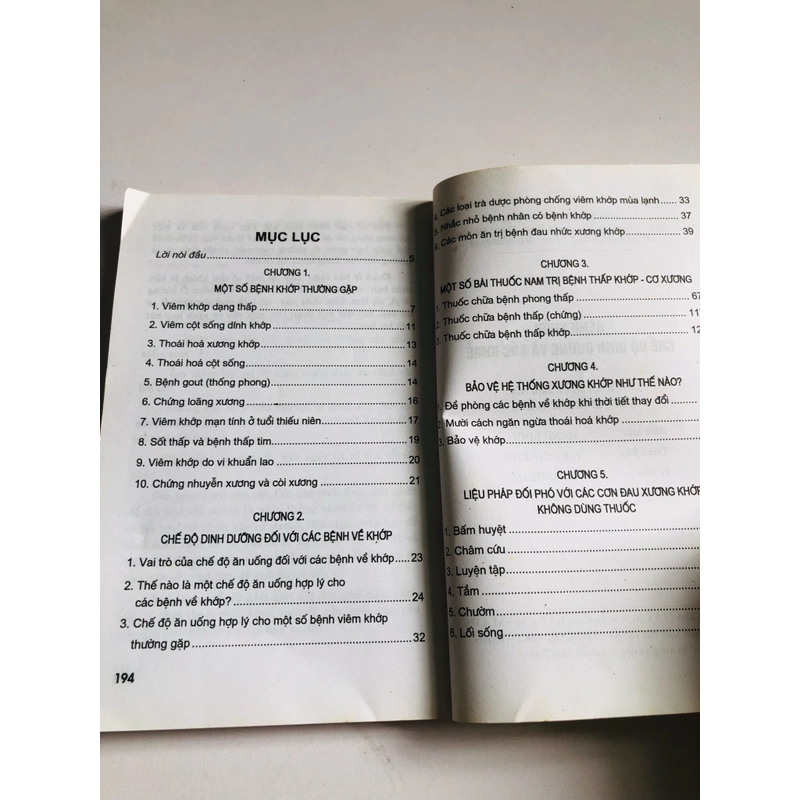 MỤC LỤC
Lời nói đầu.....5
CHƯƠNG 1.
MỘT SỐ BỆNH KHỚP THƯỜNG GẶP
1. Viêm khớp dạng thấp.....7
2. Viêm cột sống dính khớp.....11
3. Thoái hoá xương khớp.....13
4. Thoái hoá cột sống.....14
5. Bệnh gout (thống phong).....14
6. Chứng loãng xương.....16
7. Viêm khớp mạn tính ở tuổi thiếu niên.....17
8. Sốt thấp và bệnh thấp tim.....19
9. Viêm khớp do vi khuẩn lao.....20
10. Chứng nhuyễn xương và còi xương.....21
CHƯƠNG 2.
CHẾ ĐỘ DINH DƯỠNG ĐỐI VỚI CÁC BỆNH VỀ KHỚP
1. Vai trò của chế độ ăn uống đối với các bệnh về khớp.....23
2. Thế nào là một chế độ ăn uống hợp lý cho
các bệnh về khớp?.....24
3. Chế độ ăn uống hợp lý cho một số bệnh viêm khớp
thường gặp.....32
194
4. Các loại trà dược phòng chống viêm khớp mùa lạnh.....33
5. Nhắc nhỏ bệnh nhân có bệnh khớp.....37
6. Các món ăn trị bệnh đau nhức xương khớp.....39
CHƯƠNG 3.
MỘT SỐ BÀI THUỐC NAM TRỊ BỆNH THẤP KHỚP - CƠ XƯƠNG
1. Thuốc chữa bệnh phong thấp.....67
2. Thuốc chữa bệnh thấp (chứng).....11
3. Thuốc chữa bệnh thấp khớp.....12
CHƯƠNG 4.
BẢO VỆ HỆ THỐNG XƯƠNG KHỚP NHƯ THẾ NÀO?
1. Đề phòng các bệnh về khớp khi thời tiết thay đổi.....
2. Mười cách ngăn ngừa thoái hoá khớp.....
3. Bảo vệ khớp.....
CHƯƠNG 5.
LIỆU PHÁP ĐỐI PHÓ VỚI CÁC CƠN ĐAU XƯƠNG KHỚP
KHÔNG DÙNG THUỐC
1. Bấm huyệt.....
2. Châm cứu.....
3. Luyện tập.....
4. Tắm.....
5. Chườm.....
6. Lối sống.....